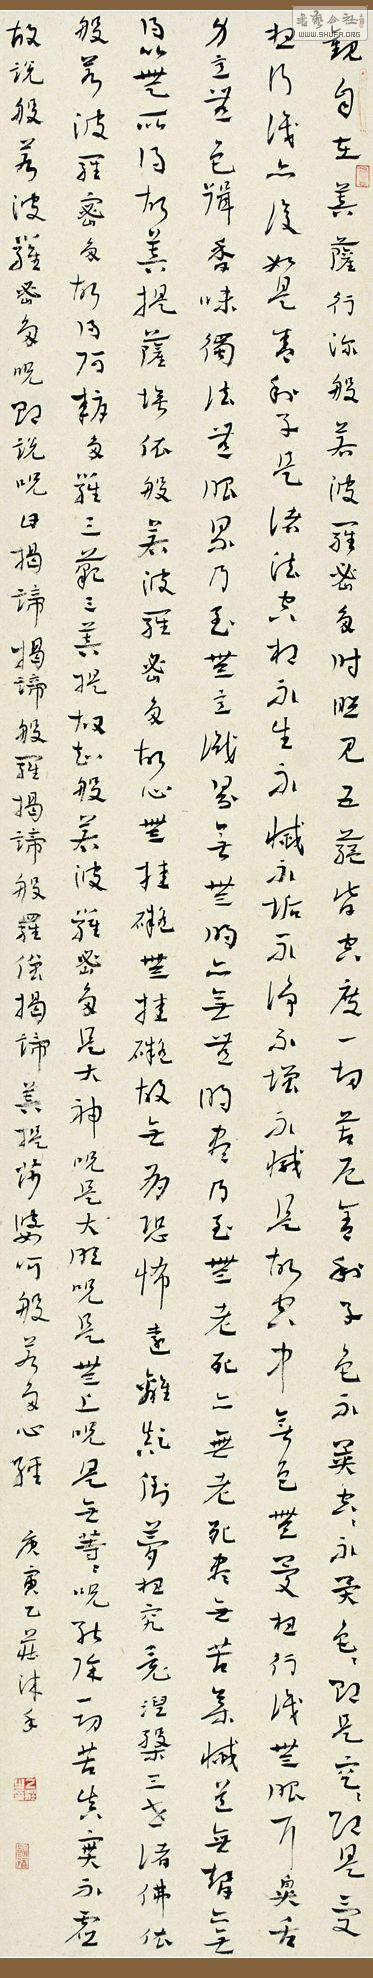 觀自在菩薩行深般若波羅密多時照見五蘊皆空度一切苦厄舍利子色不異空〻不異色〻即是空〻即是受
想行識亦復如是舍利子是諸法空相不生不滅不垢不淨不增不滅是故空中無色無受想行識無眼耳鼻舌
身意無色聲香味觸法無眼界乃至無意識界無無明亦無無明盡乃至無老死亦無老死盡無苦集滅道無智無
得以無所得故菩提薩埵依般若波羅密多故心無挂礙無挂礙故無有恐怖遠離顛倒夢想究竟涅槃三世諸佛依
般若波羅密多故得阿耨多羅三藐三菩提故知般若波羅密多是大神咒是大明咒是無上咒是無等〻咒能除一切苦真實不虛
故說般若波羅密多咒即說咒曰揭諦揭諦般羅揭諦般羅僧揭諦菩提薩婆訶般若多心經 庚寅乙莊沐手
書藝公社
WWW.SHUFA.ORG